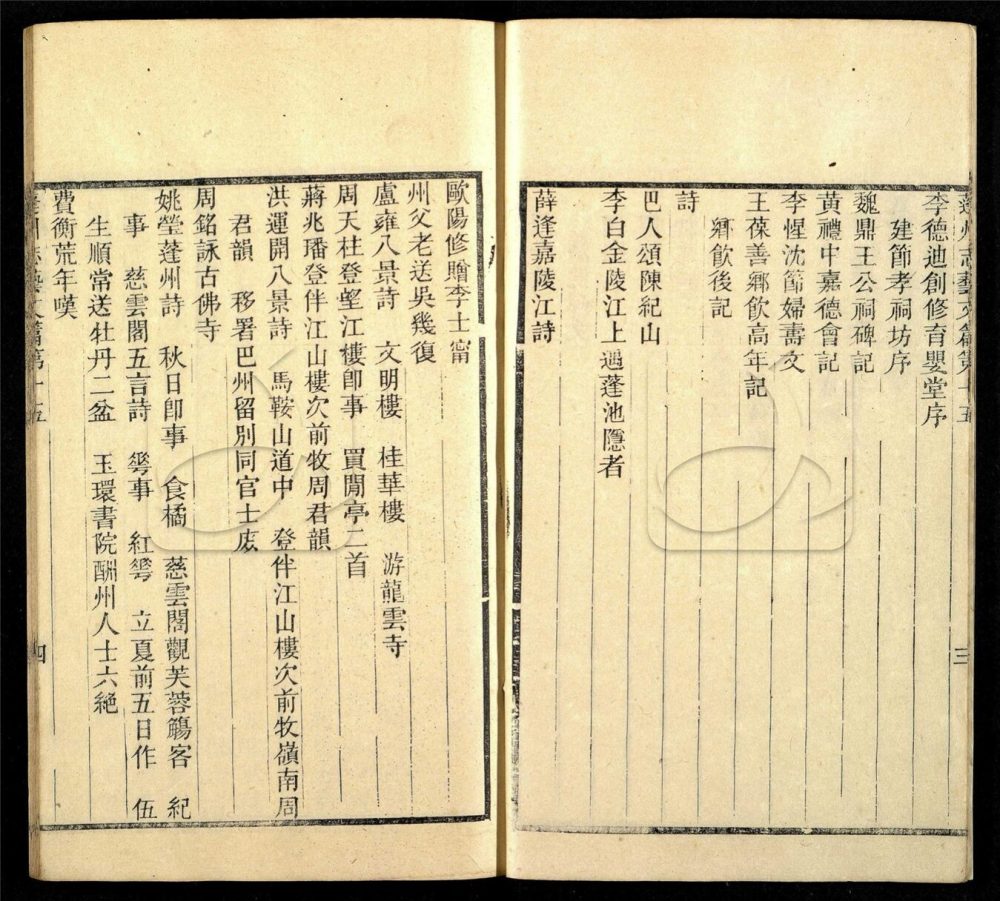 蓬州志藝文篇第十五
三
李德迪創修育嬰堂序
建節孝祠坊序
魏鼎王公祠碑記
黃禮中嘉德會記
李惺沈節婦壽文
王葆善鄉飲高年記
鄉飲後記
詩
巴人頌陳紀山
李白金陵江上遇蓬池隱者
薛逢嘉陵江詩
歐陽修贈李士甯
州父老送吳幾復
盧雍八景詩　文明樓　桂華樓　游龍雲寺
周天柱登望江樓卽事　買閒亭二首
蔣兆璠登伴江山樓次前牧周君韻
洪運開八景詩　馬鞍山道中　登伴江山樓次前牧嶺南周
君韻　移署巴州留別同官士庶
周銘詠古佛寺
姚瑩蓬州詩　秋日卽事　食橘　慈雲閣觀芙蓉觴客　紀
事　慈雲閣五言詩　甞事　紅甞　立夏前五日作　伍
生順常送牡丹二盆　玉環書院酬州人士六絕
費衡荒年嘆
蓬州志藝文篇第十五
四